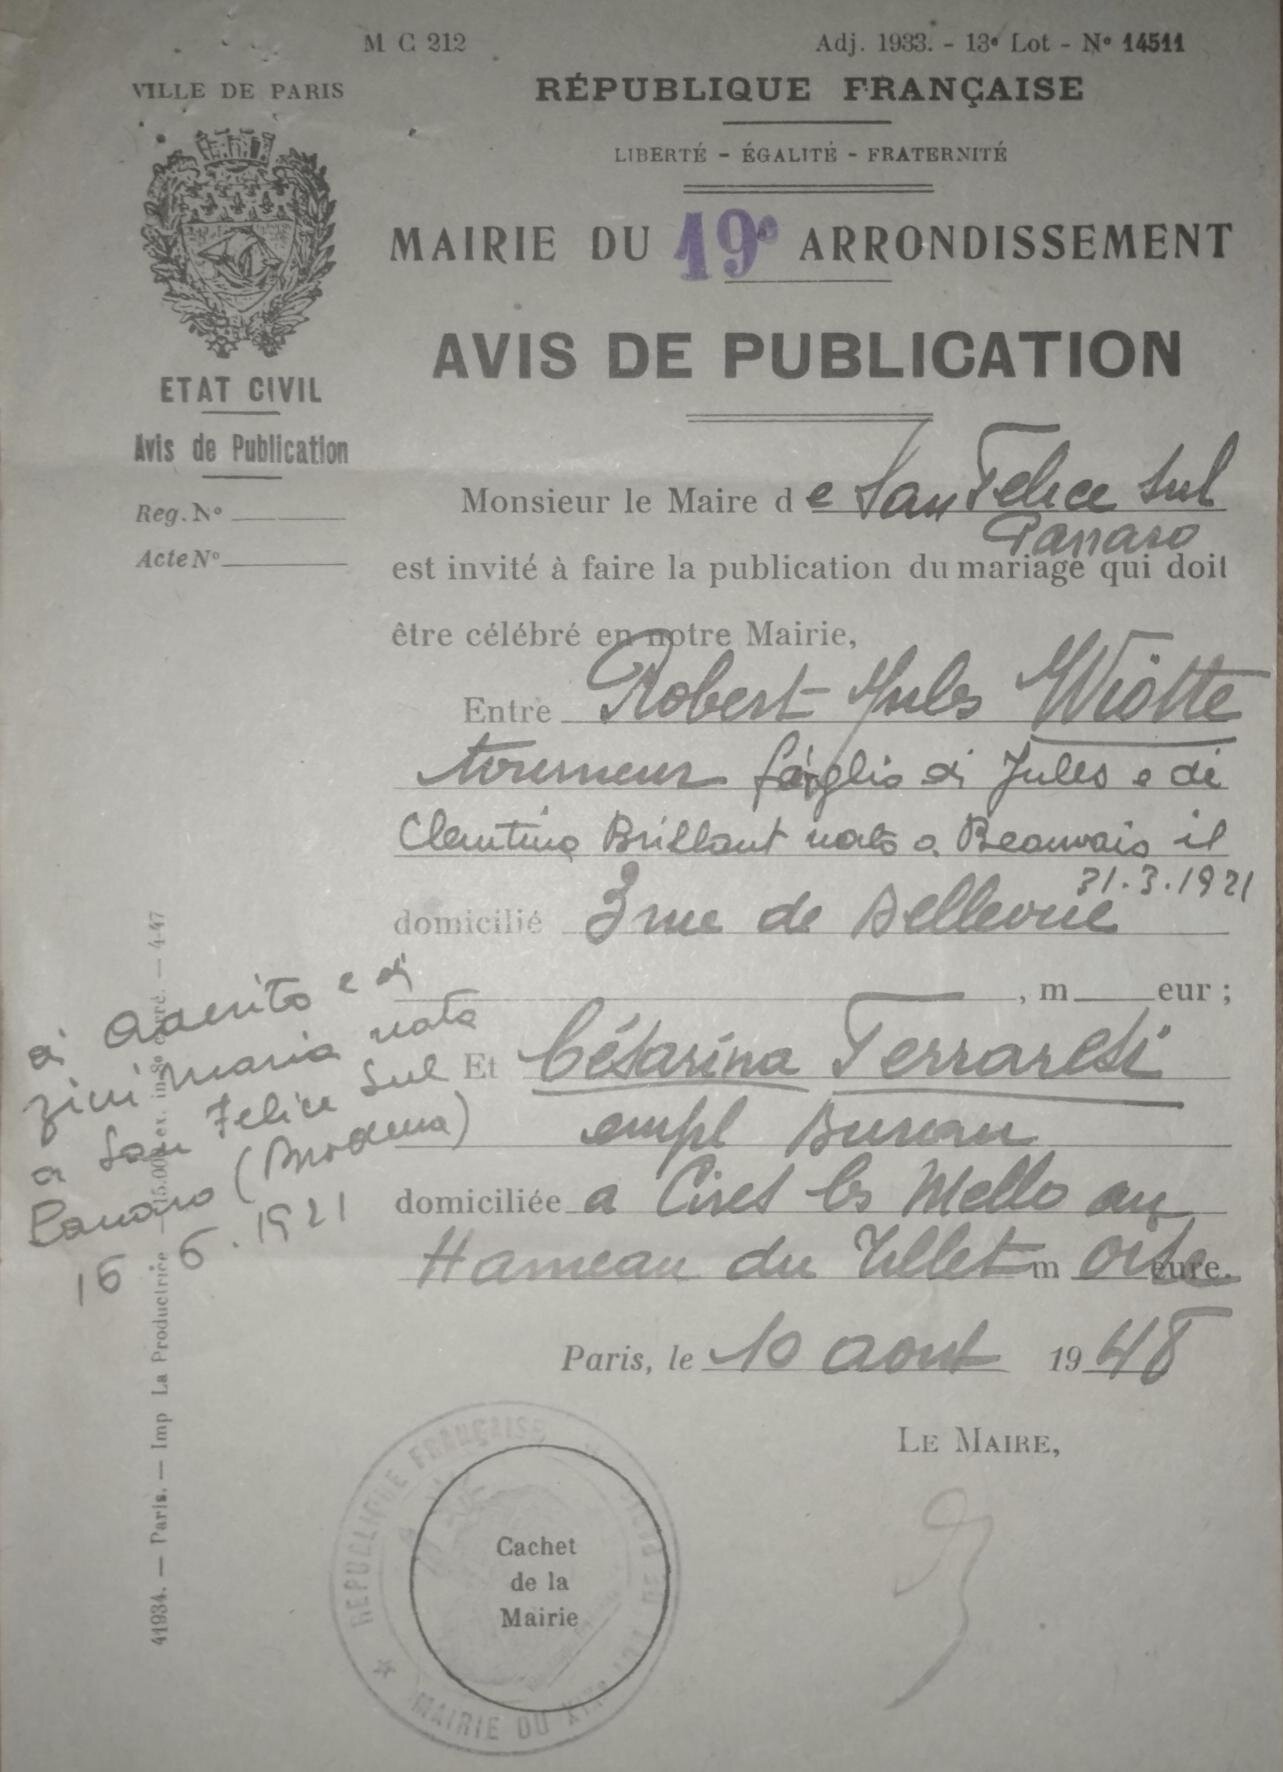 M C 212
Adj. 1933. - 13e Lot - No 14511
VILLE DE PARIS
RÉPUBLIQUE FRANÇAISE
LIBERTÉ - ÉGALITÉ - FRATERNITÉ
MAIRIE DU 19e ARRONDISSEMENT
AVIS DE PUBLICATION
ETAT CIVIL
Avis de Publication
Reg. No
Acte No
Monsieur le Maire de San Felice sul
Panaro
est invité à faire la publication du mariage qui doit
être célébré en notre Mairie,
Entre Robert Jules Wiotte
tourneur figlio di Jules e di
Clentina Brillant nato a Beauvais il
31.3.1921
domicilié 3 rue de Bellevue
, m eur ;
Et Césarina Ferraresi
empl Bureau
domiciliée a Cires les Mello au
Hameau du Tillet m Oise eure.
di e di
Zini Maria nata
a San Felice sul
Panaro (Modena)
16 6.1921
Paris, le 10 aout 1948
LE MAIRE,
Cachet
de la
Mairie
RÉPUBLIQUE FRANÇAISE
MAIRIE DU XIXe
41934. — Paris. — Imp La Productrice
4-47